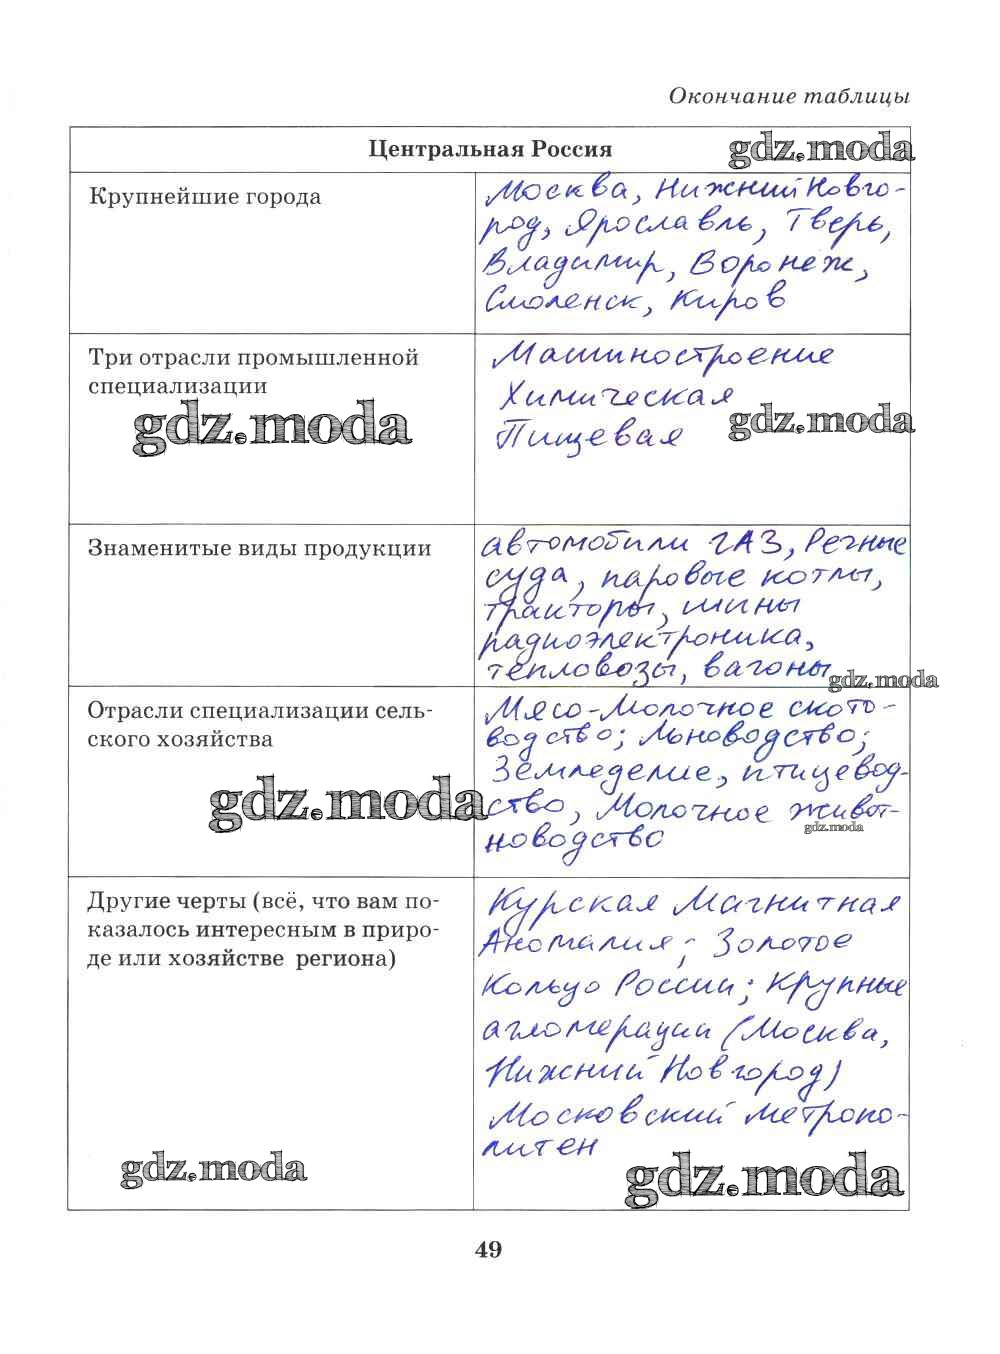 Окончание таблицы
Центральная Россия
gdz.moda
Крупнейшие города
Москва, Нижний Новго-
род, Ярославль, Тверь,
Владимир, Воронеж,
Смоленск, Киров
Три отрасли промышленной
специализации
gdz.moda
Машиностроение
Химическая
Пищевая
gdz.moda
Знаменитые виды продукции
автомобили ГАЗ, Речные
суда, паровые котлы,
тракторы, шины
радиоэлектроника,
тепловозы, вагоны
gdz.moda
Отрасли специализации сель-
ского хозяйства
gdz.moda
Мясо-Молочное ското-
водство; Льноводство;
Земледелие, птицевод-
ство, Молочное живот-
новодство
gdz.moda
Другие черты (всё, что вам по-
казалось интересным в приро-
де или хозяйстве региона)
Курская Магнитная
Аномалия; Золотое
Кольцо России; Крупные
агломерации (Москва,
Нижний Новгород)
Московский метропо-
литен
gdz.moda
gdz.moda
49